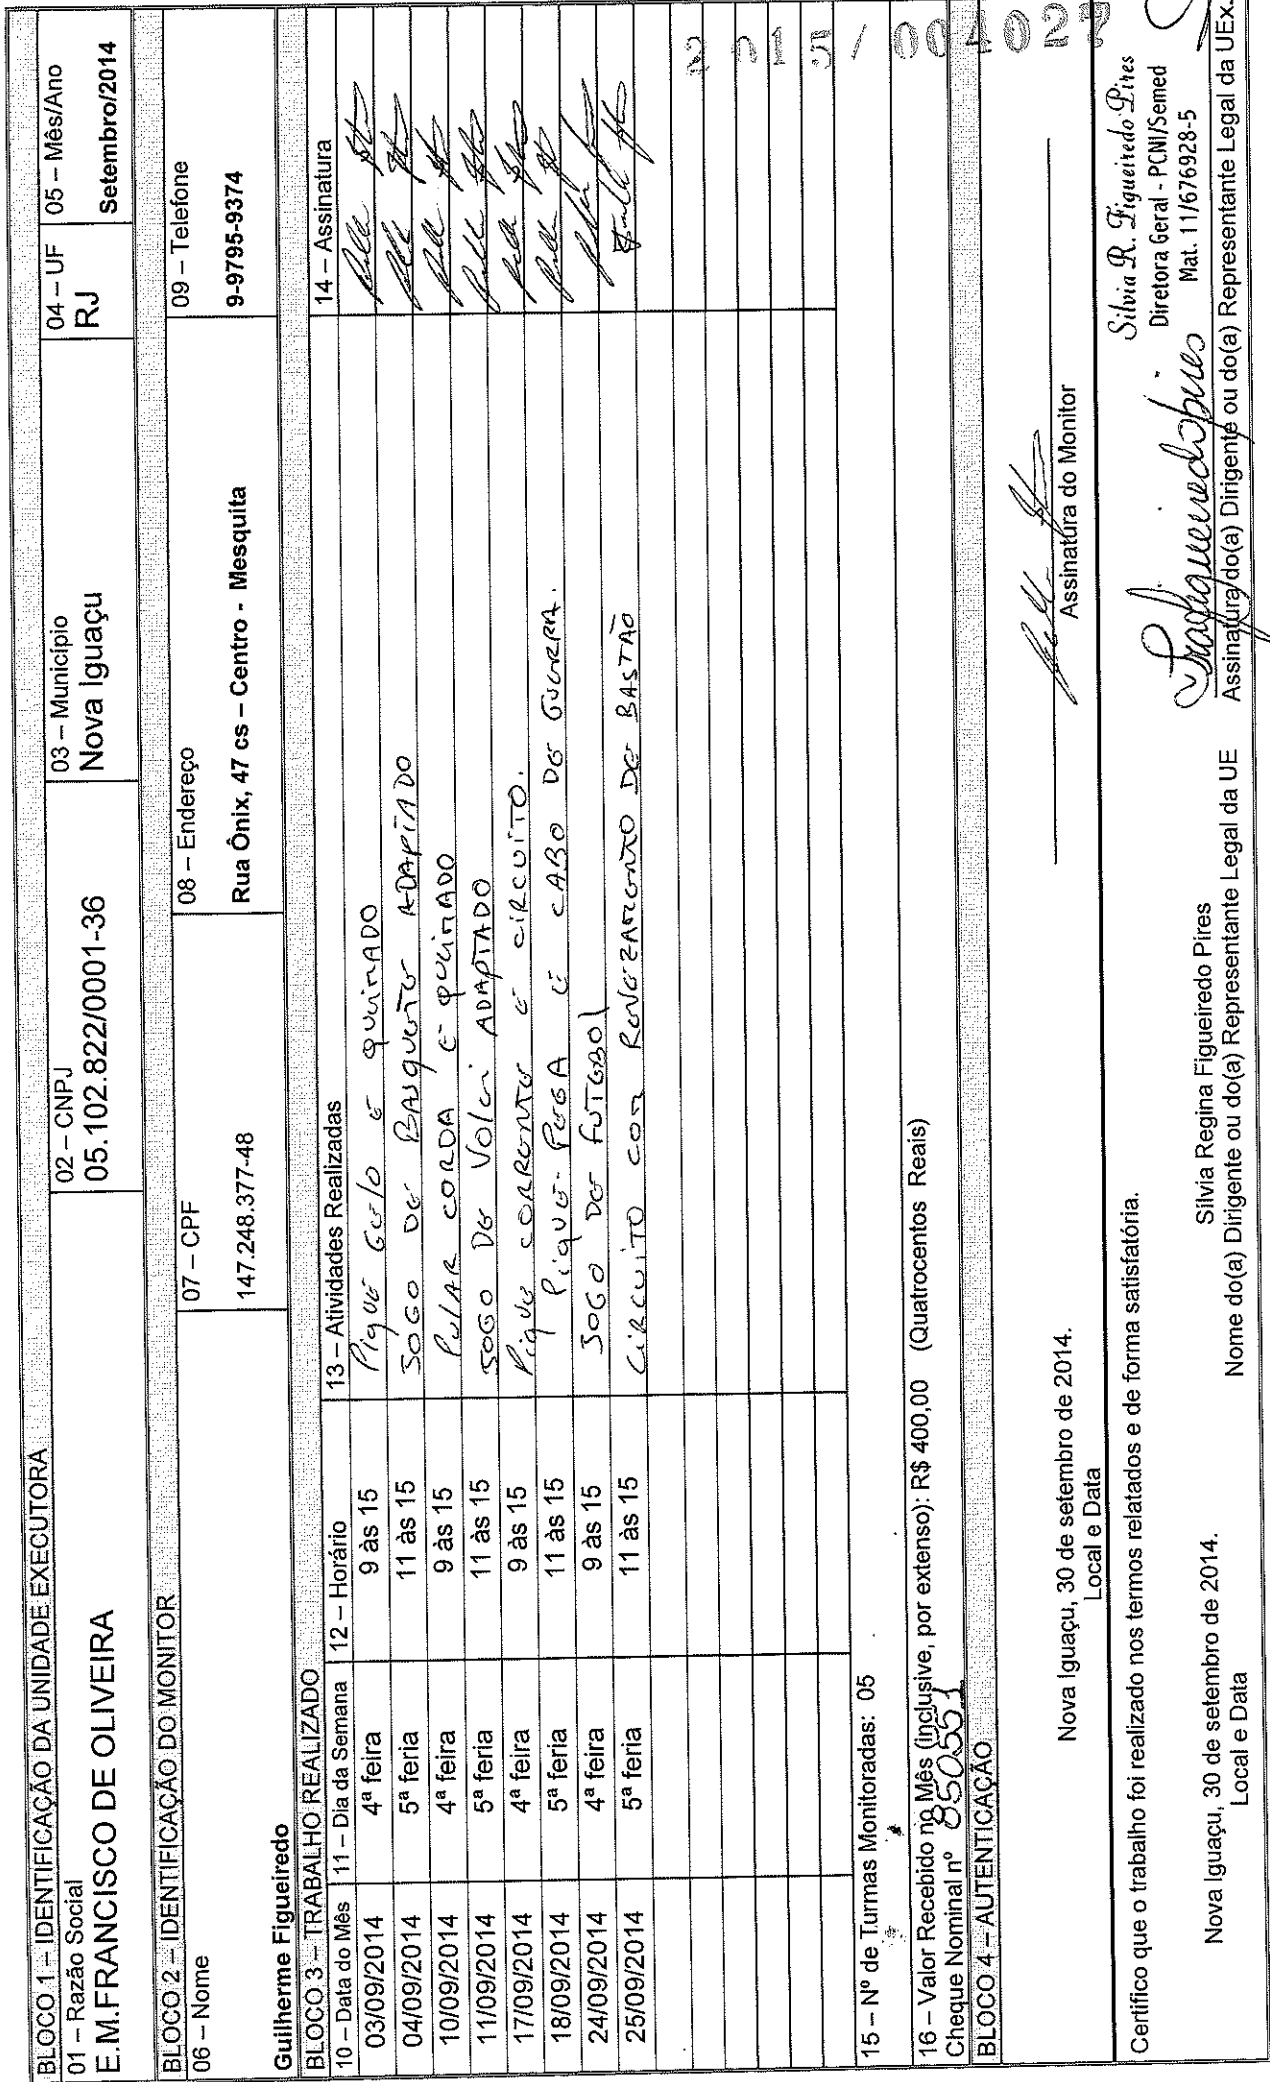 BLOCO 1 – IDENTIFICAÇÃO DA UNIDADE EXECUTORA
01 – Razão Social 02 – CNPJ 03 – Município 04 – UF 05 – Mês/Ano
E.M.FRANCISCO DE OLIVEIRA 05.102.822/0001-36 Nova Iguaçu RJ Setembro/2014
BLOCO 2 – IDENTIFICAÇÃO DO MONITOR
06 – Nome 07 – CPF 08 – Endereço 09 – Telefone
Guilherme Figueiredo 147.248.377-48 Rua Ônix, 47 cs – Centro - Mesquita 9-9795-9374
BLOCO 3 – TRABALHO REALIZADO
10 – Data do Mês 11 – Dia da Semana 12 – Horário 13 – Atividades Realizadas 14 – Assinatura
03/09/2014 4ª feira 9 às 15 Pique Gelo e queimado
04/09/2014 5ª feria 11 às 15 Jogo de Basquete adaptado
10/09/2014 4ª feira 9 às 15 Pular corda e queimado
11/09/2014 5ª feria 11 às 15 Jogo de Volei adaptado
17/09/2014 4ª feira 9 às 15 Pique corrente e circuito.
18/09/2014 5ª feria 11 às 15 Pique-Pega e cabo de guerra.
24/09/2014 4ª feira 9 às 15 Jogo de futebol
25/09/2014 5ª feria 11 às 15 Circuito com Revezamento de Bastão
2015/004027
15 – Nº de Turmas Monitoradas: 05
16 – Valor Recebido no Mês (inclusive, por extenso): R$ 400,00 (Quatrocentos Reais)
Cheque Nominal nº 850551
BLOCO 4 – AUTENTICAÇÃO
Nova Iguaçu, 30 de setembro de 2014.
Local e Data Assinatura do Monitor
Certifico que o trabalho foi realizado nos termos relatados e de forma satisfatória.
Silvia R. Figueiredo Pires
Diretora Geral - PCNI/Semed
Mat. 11/676928-5
Nova Iguaçu, 30 de setembro de 2014. Silvia Regina Figueiredo Pires
Local e Data Nome do(a) Dirigente ou do(a) Representante Legal da UE Assinatura do(a) Dirigente ou do(a) Representante Legal da UEx.